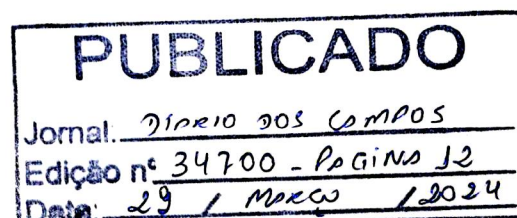 PUBLICADO
Jornal: DIARIO DOS CAMPOS
Edição nº 34700 - PAGINA 12
Data: 29 / MARÇO / 2024